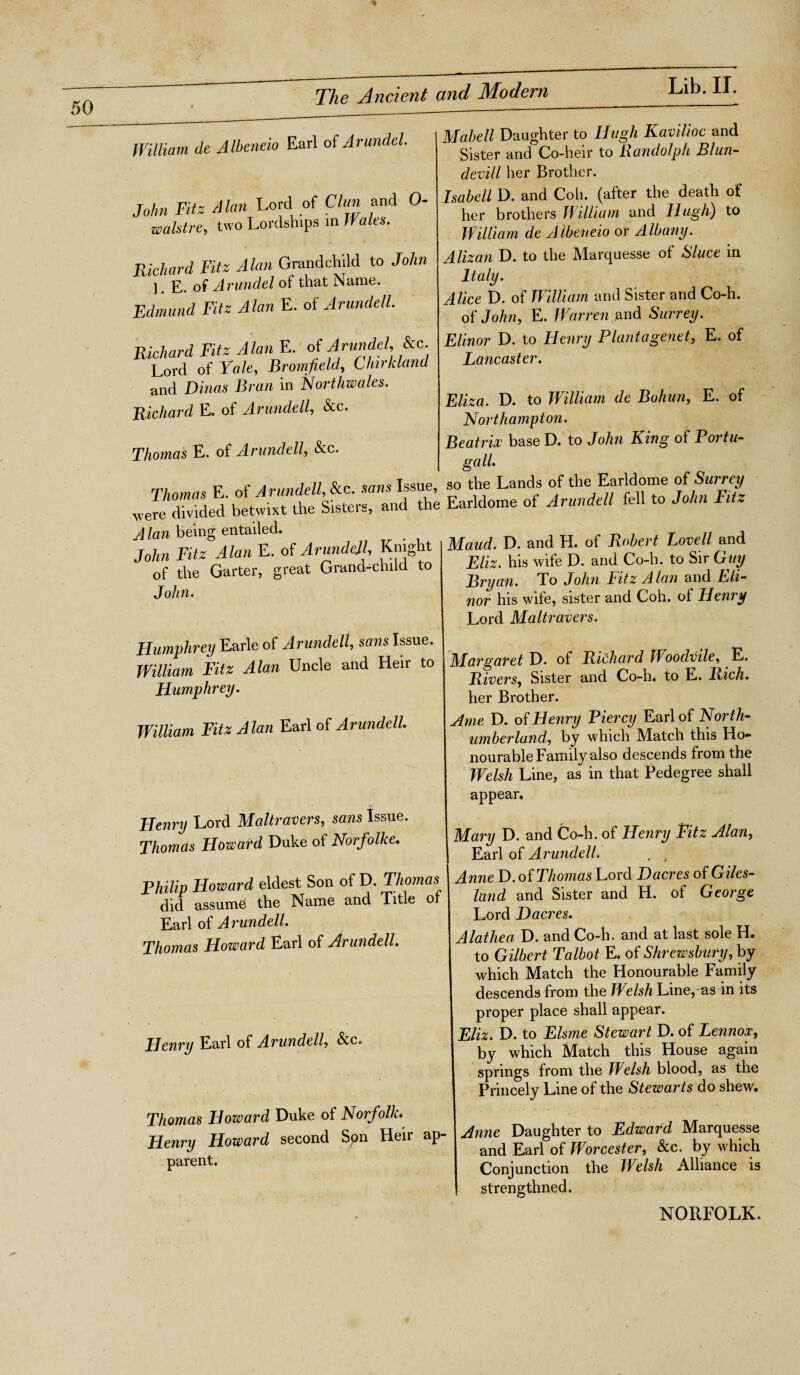 50
The Ancient and Modern
Lib. II.
William de Albeneio Earl of Arundel.
John Fitz Alan Lord of Clun and O-
walstre, two Lordships in Wales.
Richard Fitz Alan Grandchild to John
1. E. of Arundel of that Name.
Edmund Fitz Alan E. of Arundell.
Richard Fitz Alan E. of Arundel, &c.
Lord of Yale, Bromfield, Chirkland
and Dinas Bran in Northwales.
Richard E. of Arundell, &c.
Thomas E. of Arundell, &c.
Mabell Daughter to Hugh Kavilioc and
Sister and Co-heir to Randolph Blun-
devill her Brother.
Isabell D. and Coh. (after the death of
her brothers William and Hugh) to
William de Albeneio or Albany.
Alizan D. to the Marquesse of Sluce in
Italy.
Alice D. of William and Sister and Co-h.
of John, E. Warren and Surrey.
Elinor D. to Henry Plantagenet, E. of
Lancaster.
Eliza. D. to William de Bohun, E. of
Northampton.
Beatrix base D. to John King of Portu-
gall.
Thomas E. of Arundell, &c. sans Issue, so the Lands of the Earldome of Surrey
were divided betwixt the Sisters, and the Earldome of Arundell fell to John Fitz
Alan being entailed.
John Fitz Alan E. of Arundell, Knight
of the Garter, great Grand-child to
John.
Humphrey Earle of Arundell, sans Issue.
William Fitz Alan Uncle and Heir to
Humphrey.
William Fitz Alan Earl of Arundell.
Henry Lord Maltravers, sans Issue.
Thomas Howard Duke of Norfolke.
Philip Howard eldest Son of D. Thomas
did assume the Name and Title of
Earl of Arundell.
Thomas Howard Earl of Arundell.
Henry Earl of Arundell, &c.
Thomas Howard Duke of Norfolk.
Henry Howard second Son Heir ap-
parent.
Maud. D. and H. of Robert Lovell and
Eliz. his wife D. and Co-h. to Sir Guy
Bryan. To John Fitz Alan and Eli-
nor his wife, sister and Coh. of Henry
Lord Maltravers.
Margaret D. of Richard Woodvile, E.
Rivers, Sister and Co-h. to E. Rich.
her Brother.
Ame D. of Henry Piercy Earl of North-
umberland, by which Match this Ho-
nourable Family also descends from the
Welsh Line, as in that Pedegree shall
appear.
Mary D. and Co-h. of Henry Fitz Alan,
Earl of Arundell.
Anne D. of Thomas Lord Dacres of Giles-
land and Sister and H. of George
Lord Dacres.
Alathea D. and Co-h. and at last sole H.
to Gilbert Talbot E. of Shrewsbury, by
which Match the Honourable Family
descends from the Welsh Line, as in its
proper place shall appear.
Eliz. D. to Elsme Stewart D. of Lennox,
by which Match this House again
springs from the Welsh blood, as the
Princely Line of the Stewarts do shew.
Anne Daughter to Edward Marquesse
and Earl of Worcester, &c. by which
Conjunction the Welsh Alliance is
strengthned.
NORFOLK.